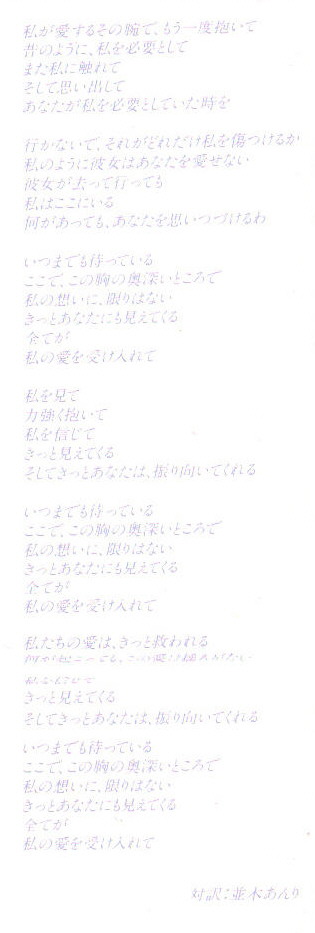 私が愛するその腕で、もう一度抱いて
昔のように、私を必要として
また私に触れて
そして思い出して
あなたが私を必要としていた時を
行かないで、それがどれだけ私を傷つけるか
私のように彼女はあなたを愛せない
彼女が去って行っても
私はここにいる
何があっても、あなたを思いつづけるわ
いつまでも待っている
ここで、この胸の奥深いところで
私の想いに、限りはない
きっとあなたにも見えてくる
全てが
私の愛を受け入れて
私を見て
力強く抱いて
私を信じて
きっと見えてくる
そしてきっとあなたは、振り向いてくれる
いつまでも待っている
ここで、この胸の奥深いところで
私の想いに、限りはない
きっとあなたにも見えてくる
全てが
私の愛を受け入れて
私たちの愛は、きっと救われる
きっと見えてくる
そしてきっとあなたは、振り向いてくれる
いつまでも待っている
ここで、この胸の奥深いところで
私の想いに、限りはない
きっとあなたにも見えてくる
全てが
私の愛を受け入れて
対訳：並木あんり